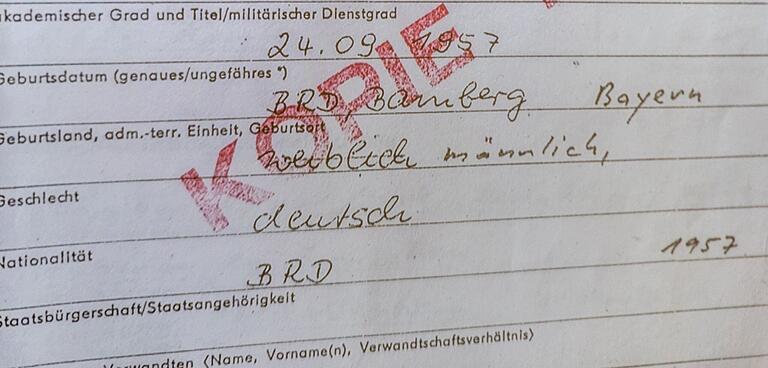 Akademischer Grad und Titel/militärischer Dienstgrad
24.09 1957
Geburtsdatum (genaues/ungefähres *)
BRD, Bamberg Bayern
Geburtsland, adm.-terr. Einheit, Geburtsort
weiblich männlich,
Geschlecht
deutsch
Nationalität
BRD 1957
Staatsbürgerschaft/Staatsangehörigkeit
Verwandten (Name, Vorname(n), Verwandtschaftsverhältnis)
KOPIE